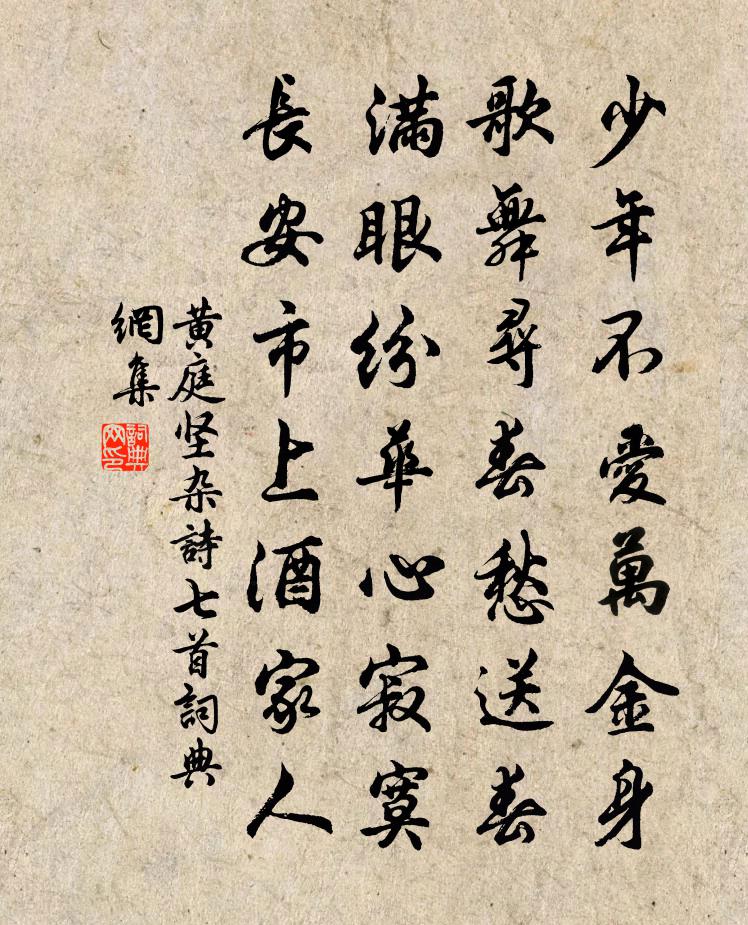 少年不愛萬金身
歌舞尋春愁送春
滿眼紛華心寂寞
長安市上酒家人
黃庭坚杂詩七首詞典
網集
詞典
网印